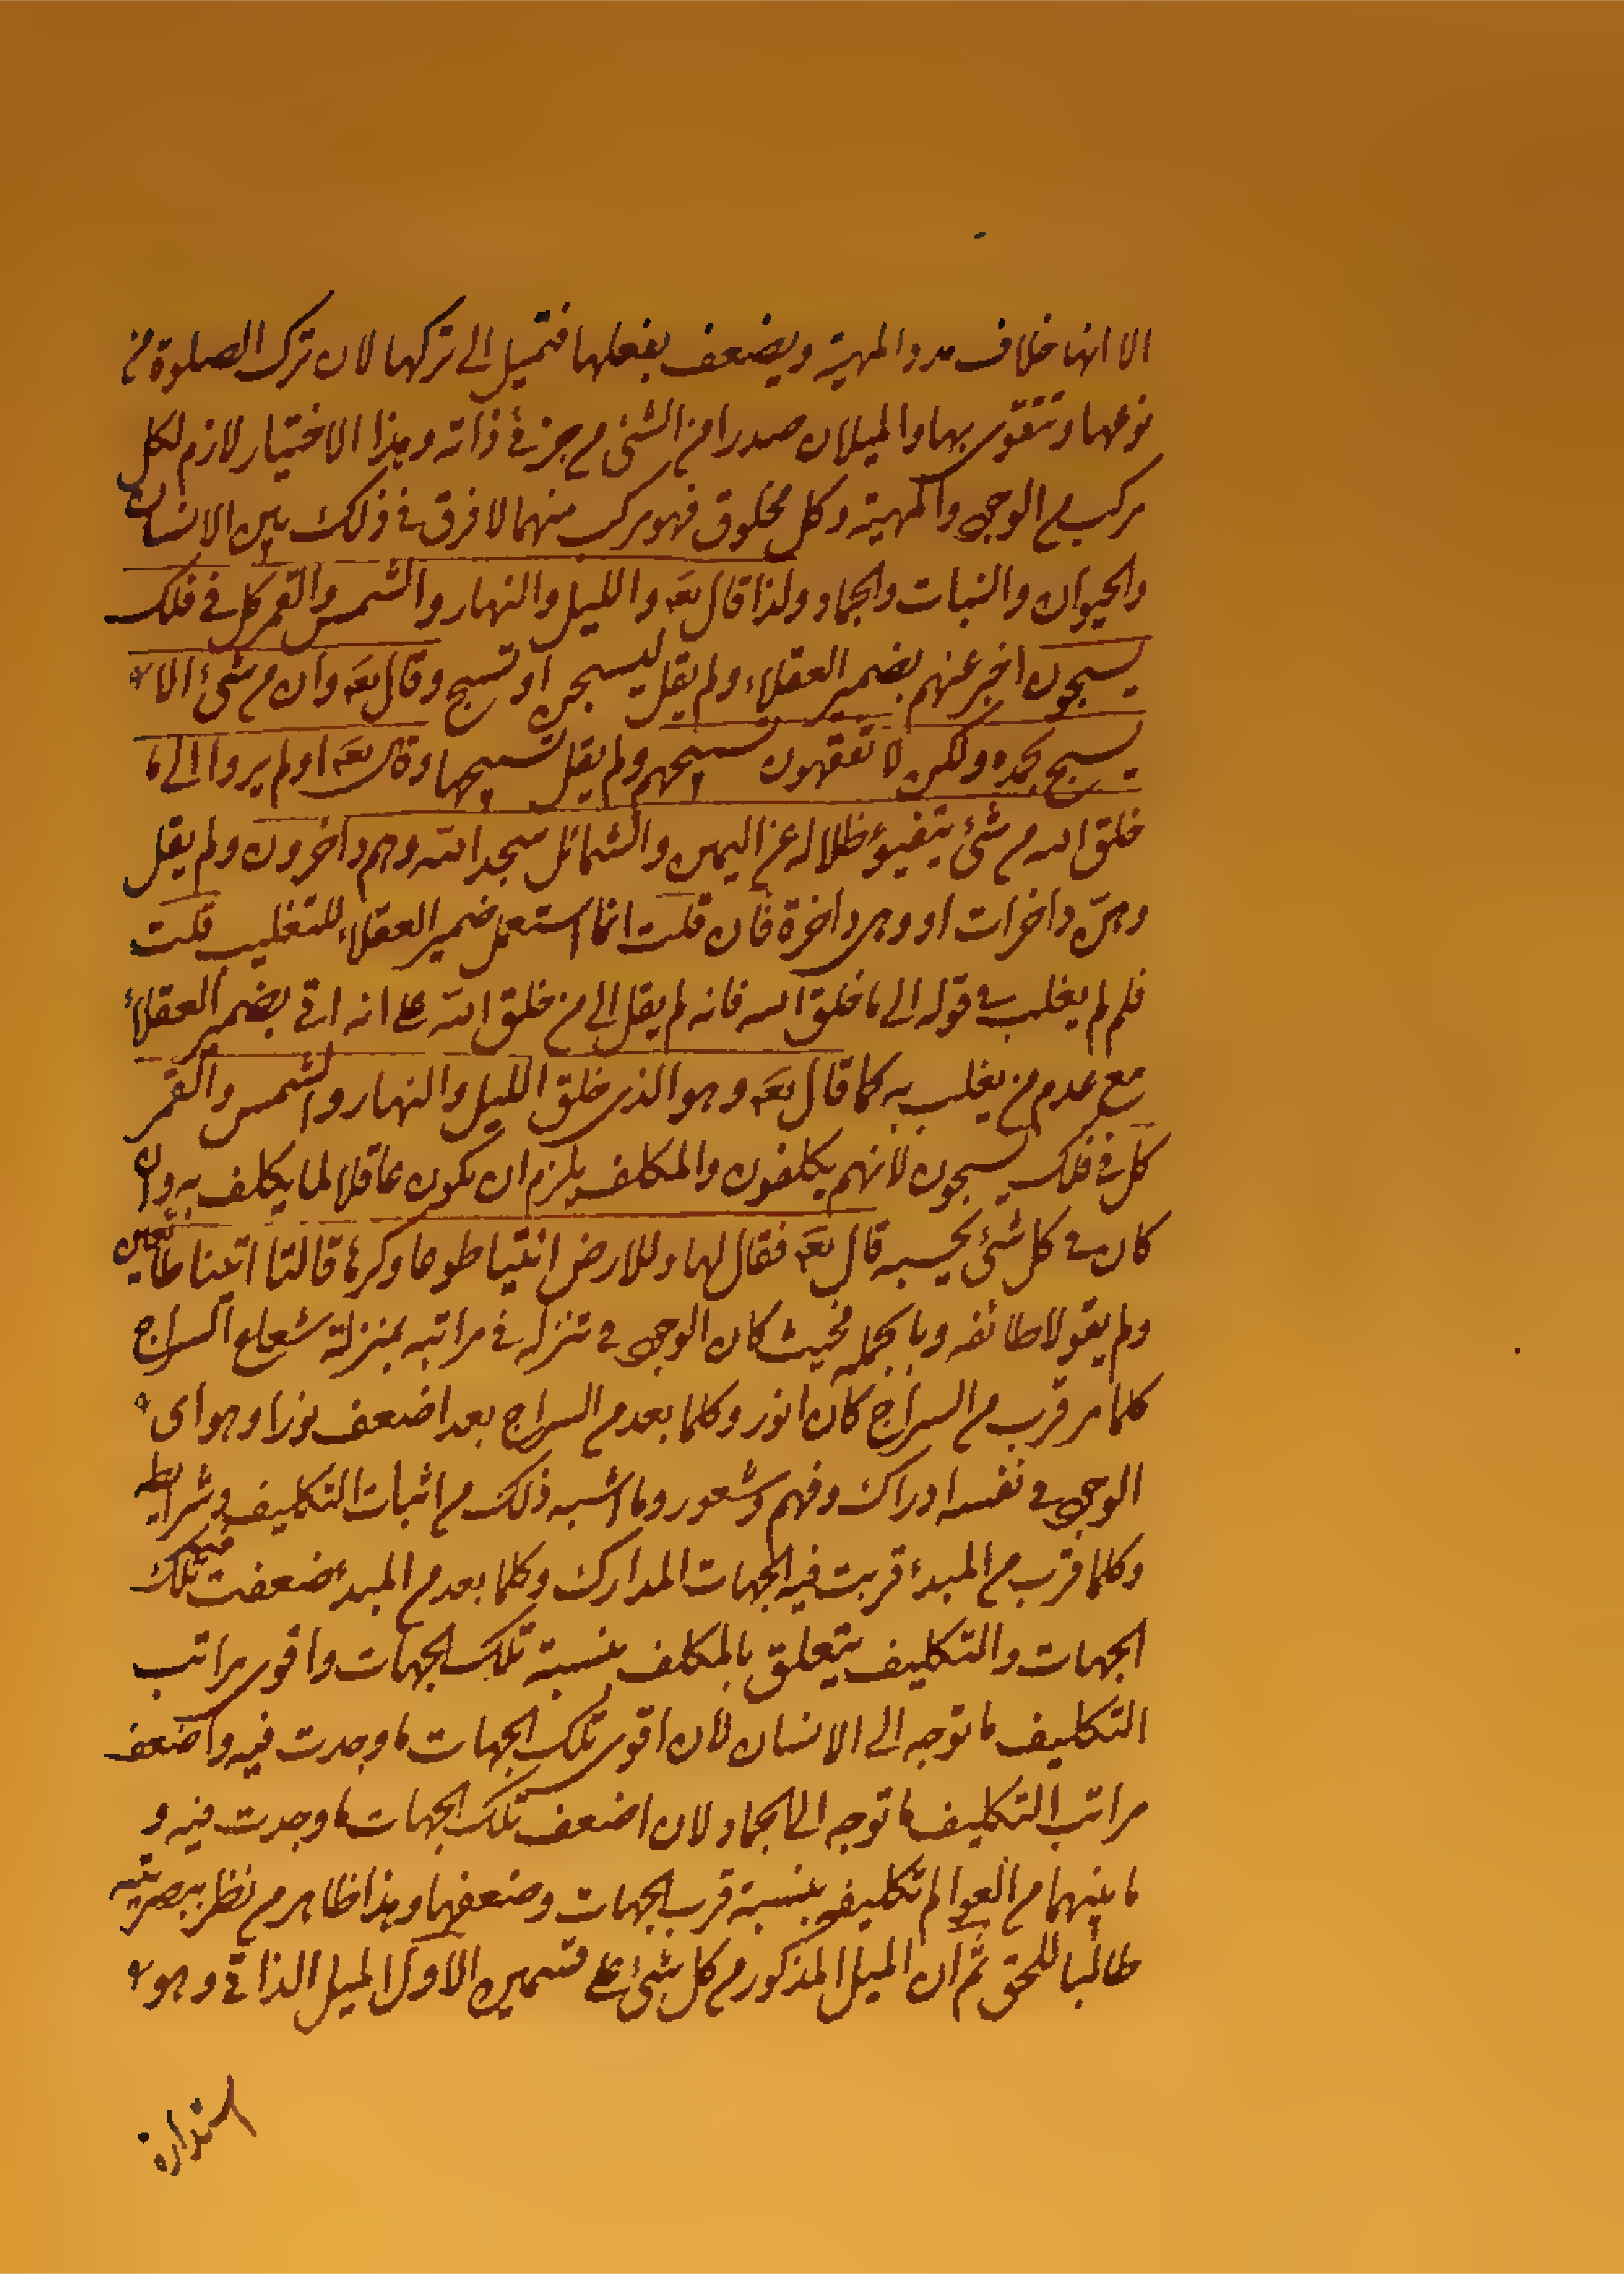 الا انها خلاف مدد المهية ويضعف بفعلها فتميل الى تركها لان ترك الصلوة من
نوعها وتتقوى بها والميلان صدرا من الشئ من جزئى ذاته وهذا الاختيار لازم لكل
مركب من الوجود والمهية وكل مخلوق فهو مركب منهما لا فرق فى ذلك بين الانسان
والحيوان والنبات والجماد ولذا قال تعه والليل والنهار والشمس والقمر كل فى فلك
يسبحون اخبر عنهم بضمير العقلاء ولم يقل ليسبحن او تسبح وقال تعه وان من شئ الا
يسبح بحمده ولكن لا تفقهون تسبيحهم ولم يقل تسبيحها وقال تعه اولم يروا الى ما
خلق الله من شئ يتفيؤ ظلاله عن اليمين والشمائل سجدا لله وهم داخرون ولم يقل
وهن داخرات او وهى داخرة فان قلت انما استعمل ضمير العقلاء للتغليب قلت
فلم لم يغلب فى قوله الى ما خلق الله فانه لم يقل الى من خلق الله على انه اتى بضمير العقلاء
مع عدم من يغلب به كما قال تعه وهو الذى خلق الليل والنهار والشمس والقمر
كل فى فلك يسبحون لأنهم يكلفون والمكلف يلزم ان يكون عاقلا لما يكلف به وان
كان فى كل شئ بحسبه قال تعه فقال لها وللارض ائتيا طوعا وكرها قالتا اتينا طائعين
ولم يقولا طائعه وبالجملة فحيث كان الوجود فى تنزله فى مراتبه بمنزلة شعاع السراج
كلما قرب من السراج كان انور وكلما بعد من السراج بعد اضعف نورا وهو اى
الوجود فى نفسه ادراك وفهم وشعور وما اشبه ذلك من اثبات التكليف وشرائطه
وكلما قرب من المبدء قربت فيه الجهات المدارك وكلما بعد من المبدء ضعفت فيه تلك
الجهات والتكليف يتعلق بالمكلف بنسبة تلك الجهات واقوى مراتب
التكليف ما توجه الى الانسان لأن اقوى تلك الجهات ما وجدت فيه واضعف
مراتب التكليف ما توجه الى الجماد لان اضعف تلك الجهات ما وجدت فيه و
ما بينهما من العوالم تكليفه بنسبة قرب الجهات وضعفها وهذا ظاهر لمن نظر ببصيرته
طالبا للحق ثم ان الميل المذكور من كل شئ على قسمين الاول الميل الذاتى وهو